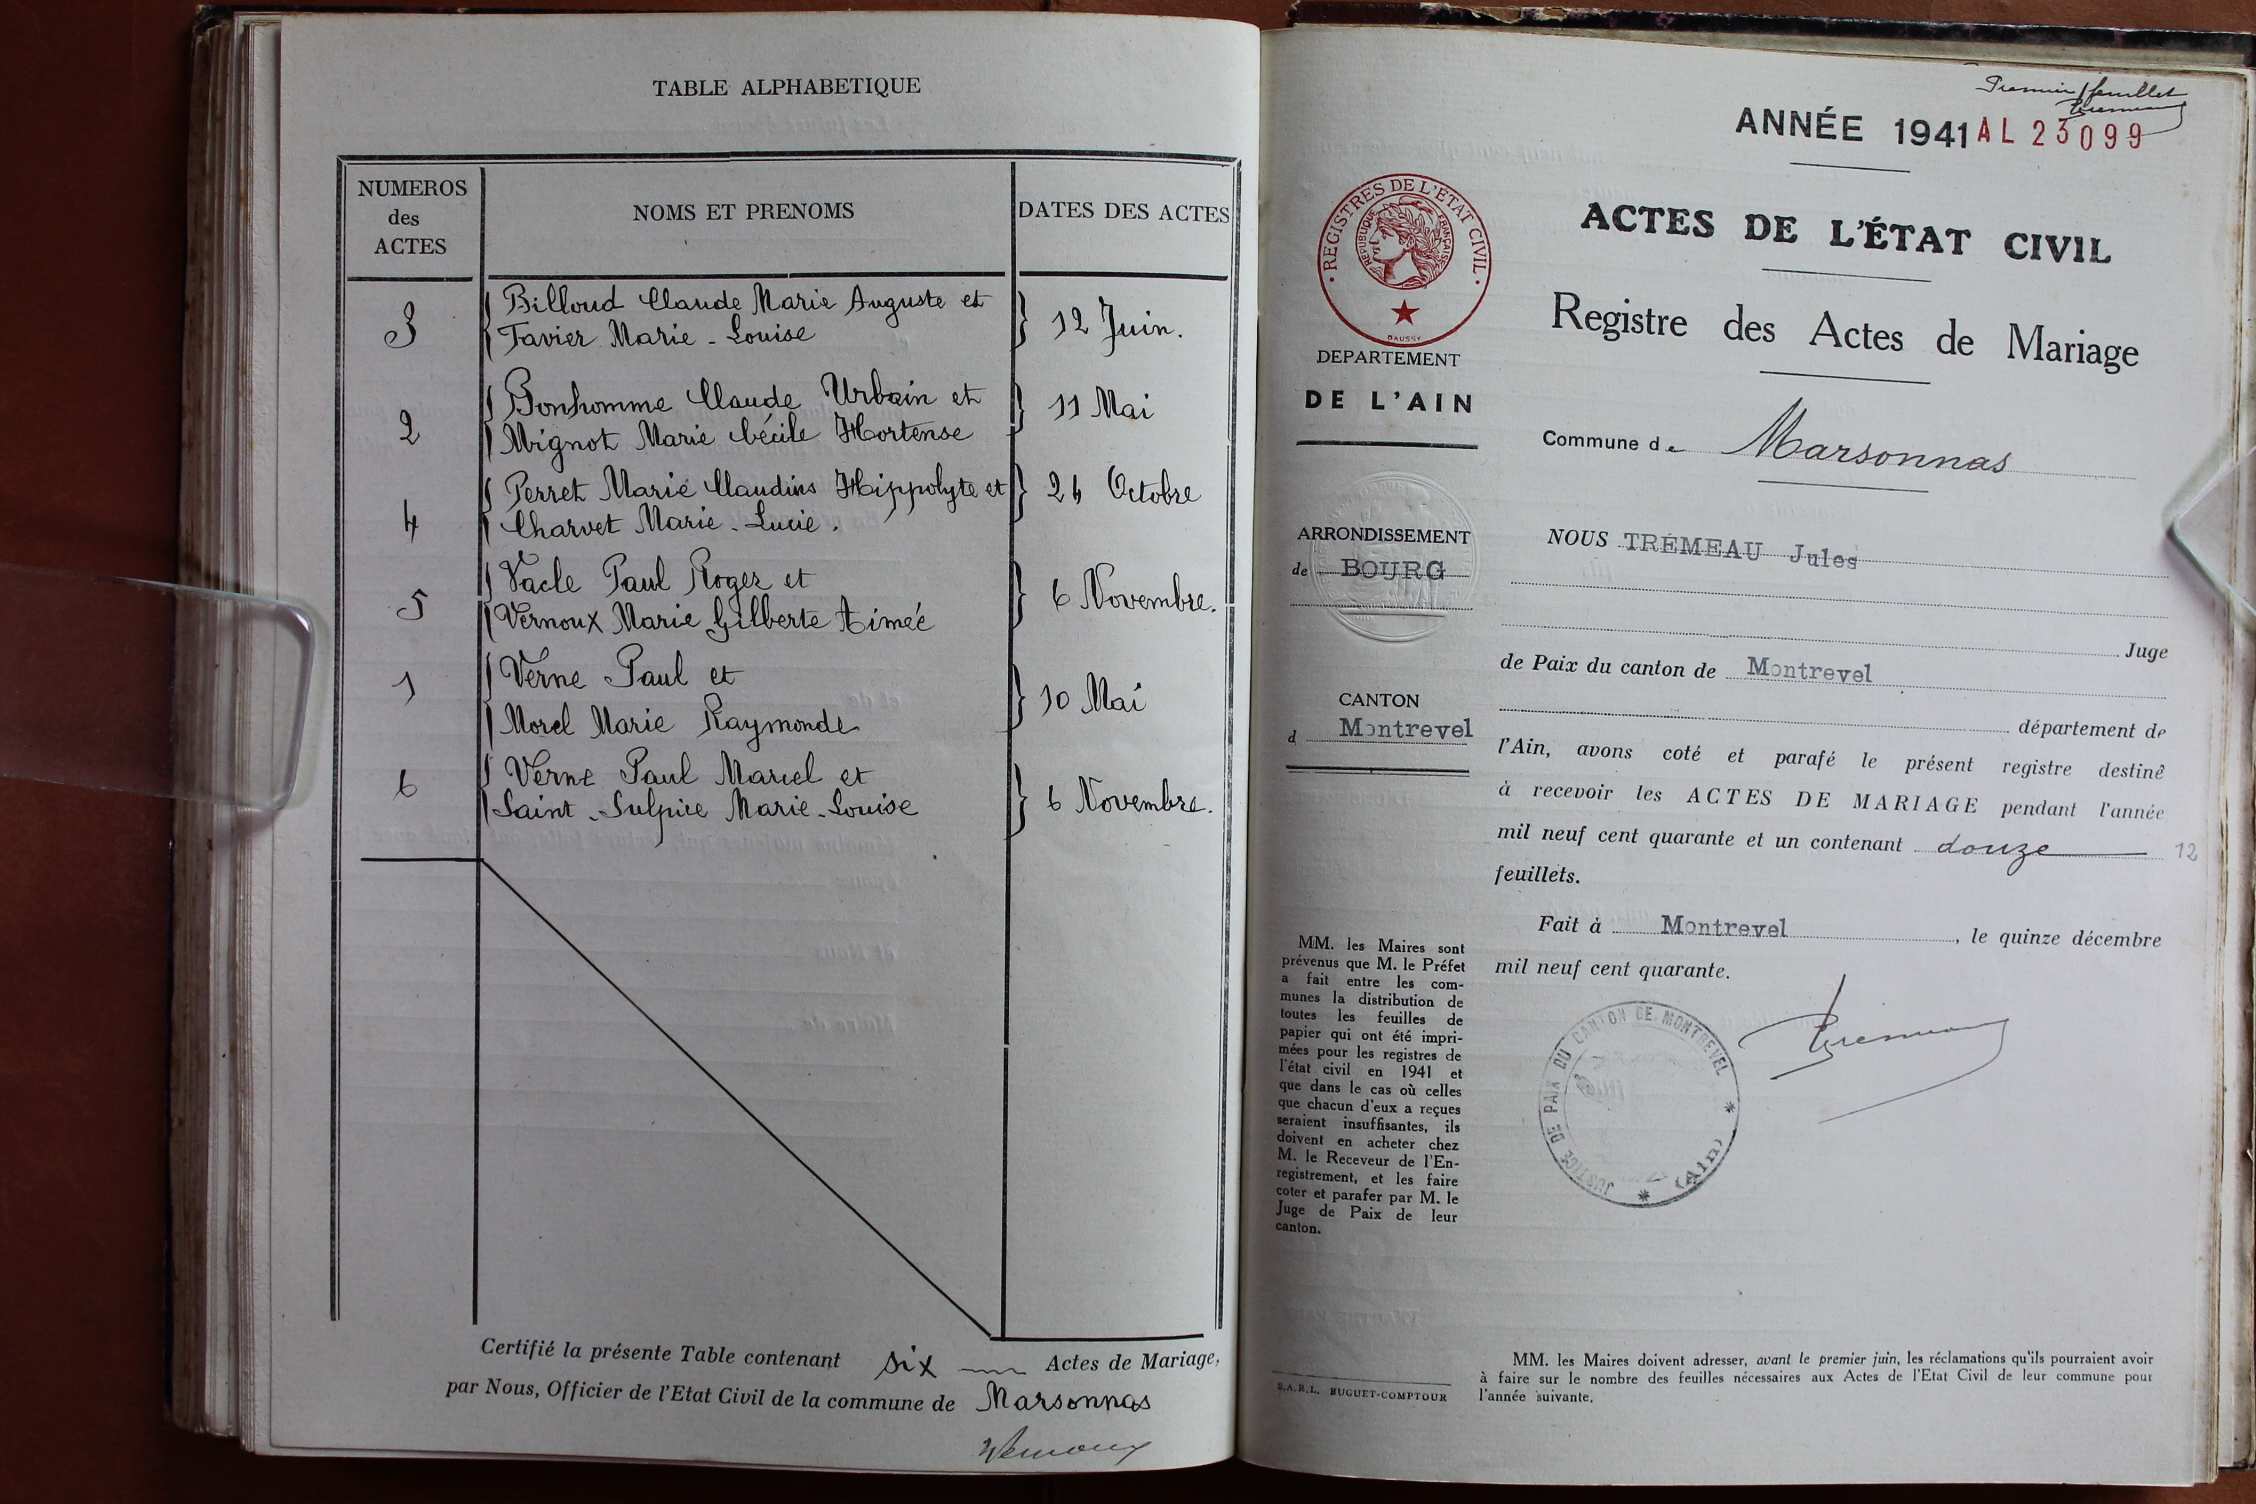 TABLE ALPHABETIQUE
NUMEROS
des
ACTES
NOMS ET PRENOMS
DATES DES ACTES
3
Billoud Claude Marie Auguste et
Favier Marie - Louise
12 Juin.
2
Bonhomme Claude Urbain et
Mignot Marie Cécile Hortense
11 Mai
4
Perret Marie Claudius Hippolyte et
Charvet Marie - Lucie.
24 Octobre
5
Vacle Paul Roger et
Vernoux Marie Gilberte Aimée
6 Novembre.
1
Verne Paul et
Morel Marie Raymonde
10 Mai
6
Verne Paul Marcel et
Saint-Sulpice Marie-Louise
6 Novembre.
Certifié la présente Table contenant six Actes de Mariage,
par Nous, Officier de l'Etat Civil de la commune de Marsonnas
Vernoux
Premier feuillet
ANNÉE 1941 AL 23099
REGISTRES DE L'ÉTAT CIVIL
RÉPUBLIQUE FRANÇAISE
DAUSSY
DEPARTEMENT
DE L'AIN
ARRONDISSEMENT
de BOURG
CANTON
d Montrevel
MM. les Maires sont
prévenus que M. le Préfet
a fait entre les com-
munes la distribution de
toutes les feuilles de
papier qui ont été impri-
mées pour les registres de
l'état civil en 1941 et
que dans le cas où celles
que chacun d'eux a reçues
seraient insuffisantes, ils
doivent en acheter chez
M. le Receveur de l'En-
registrement, et les faire
coter et parafer par M. le
Juge de Paix de leur
canton.
S.A.R.L. HUGUET-COMPTOUR
ACTES DE L'ÉTAT CIVIL
Registre des Actes de Mariage
Commune de Marsonnas
NOUS TRÉMEAU Jules
Juge
de Paix du canton de Montrevel
département de
l'Ain, avons coté et parafé le présent registre destiné
à recevoir les ACTES DE MARIAGE pendant l'année
mil neuf cent quarante et un contenant douze 12
feuillets.
Fait à Montrevel, le quinze décembre
mil neuf cent quarante.
Tremeau
JUSTICE DE PAIX DU CANTON DE MONTREVEL
(Ain)
MM. les Maires doivent adresser, avant le premier juin, les réclamations qu'ils pourraient avoir
à faire sur le nombre des feuilles nécessaires aux Actes de l'Etat Civil de leur commune pour
l'année suivante.